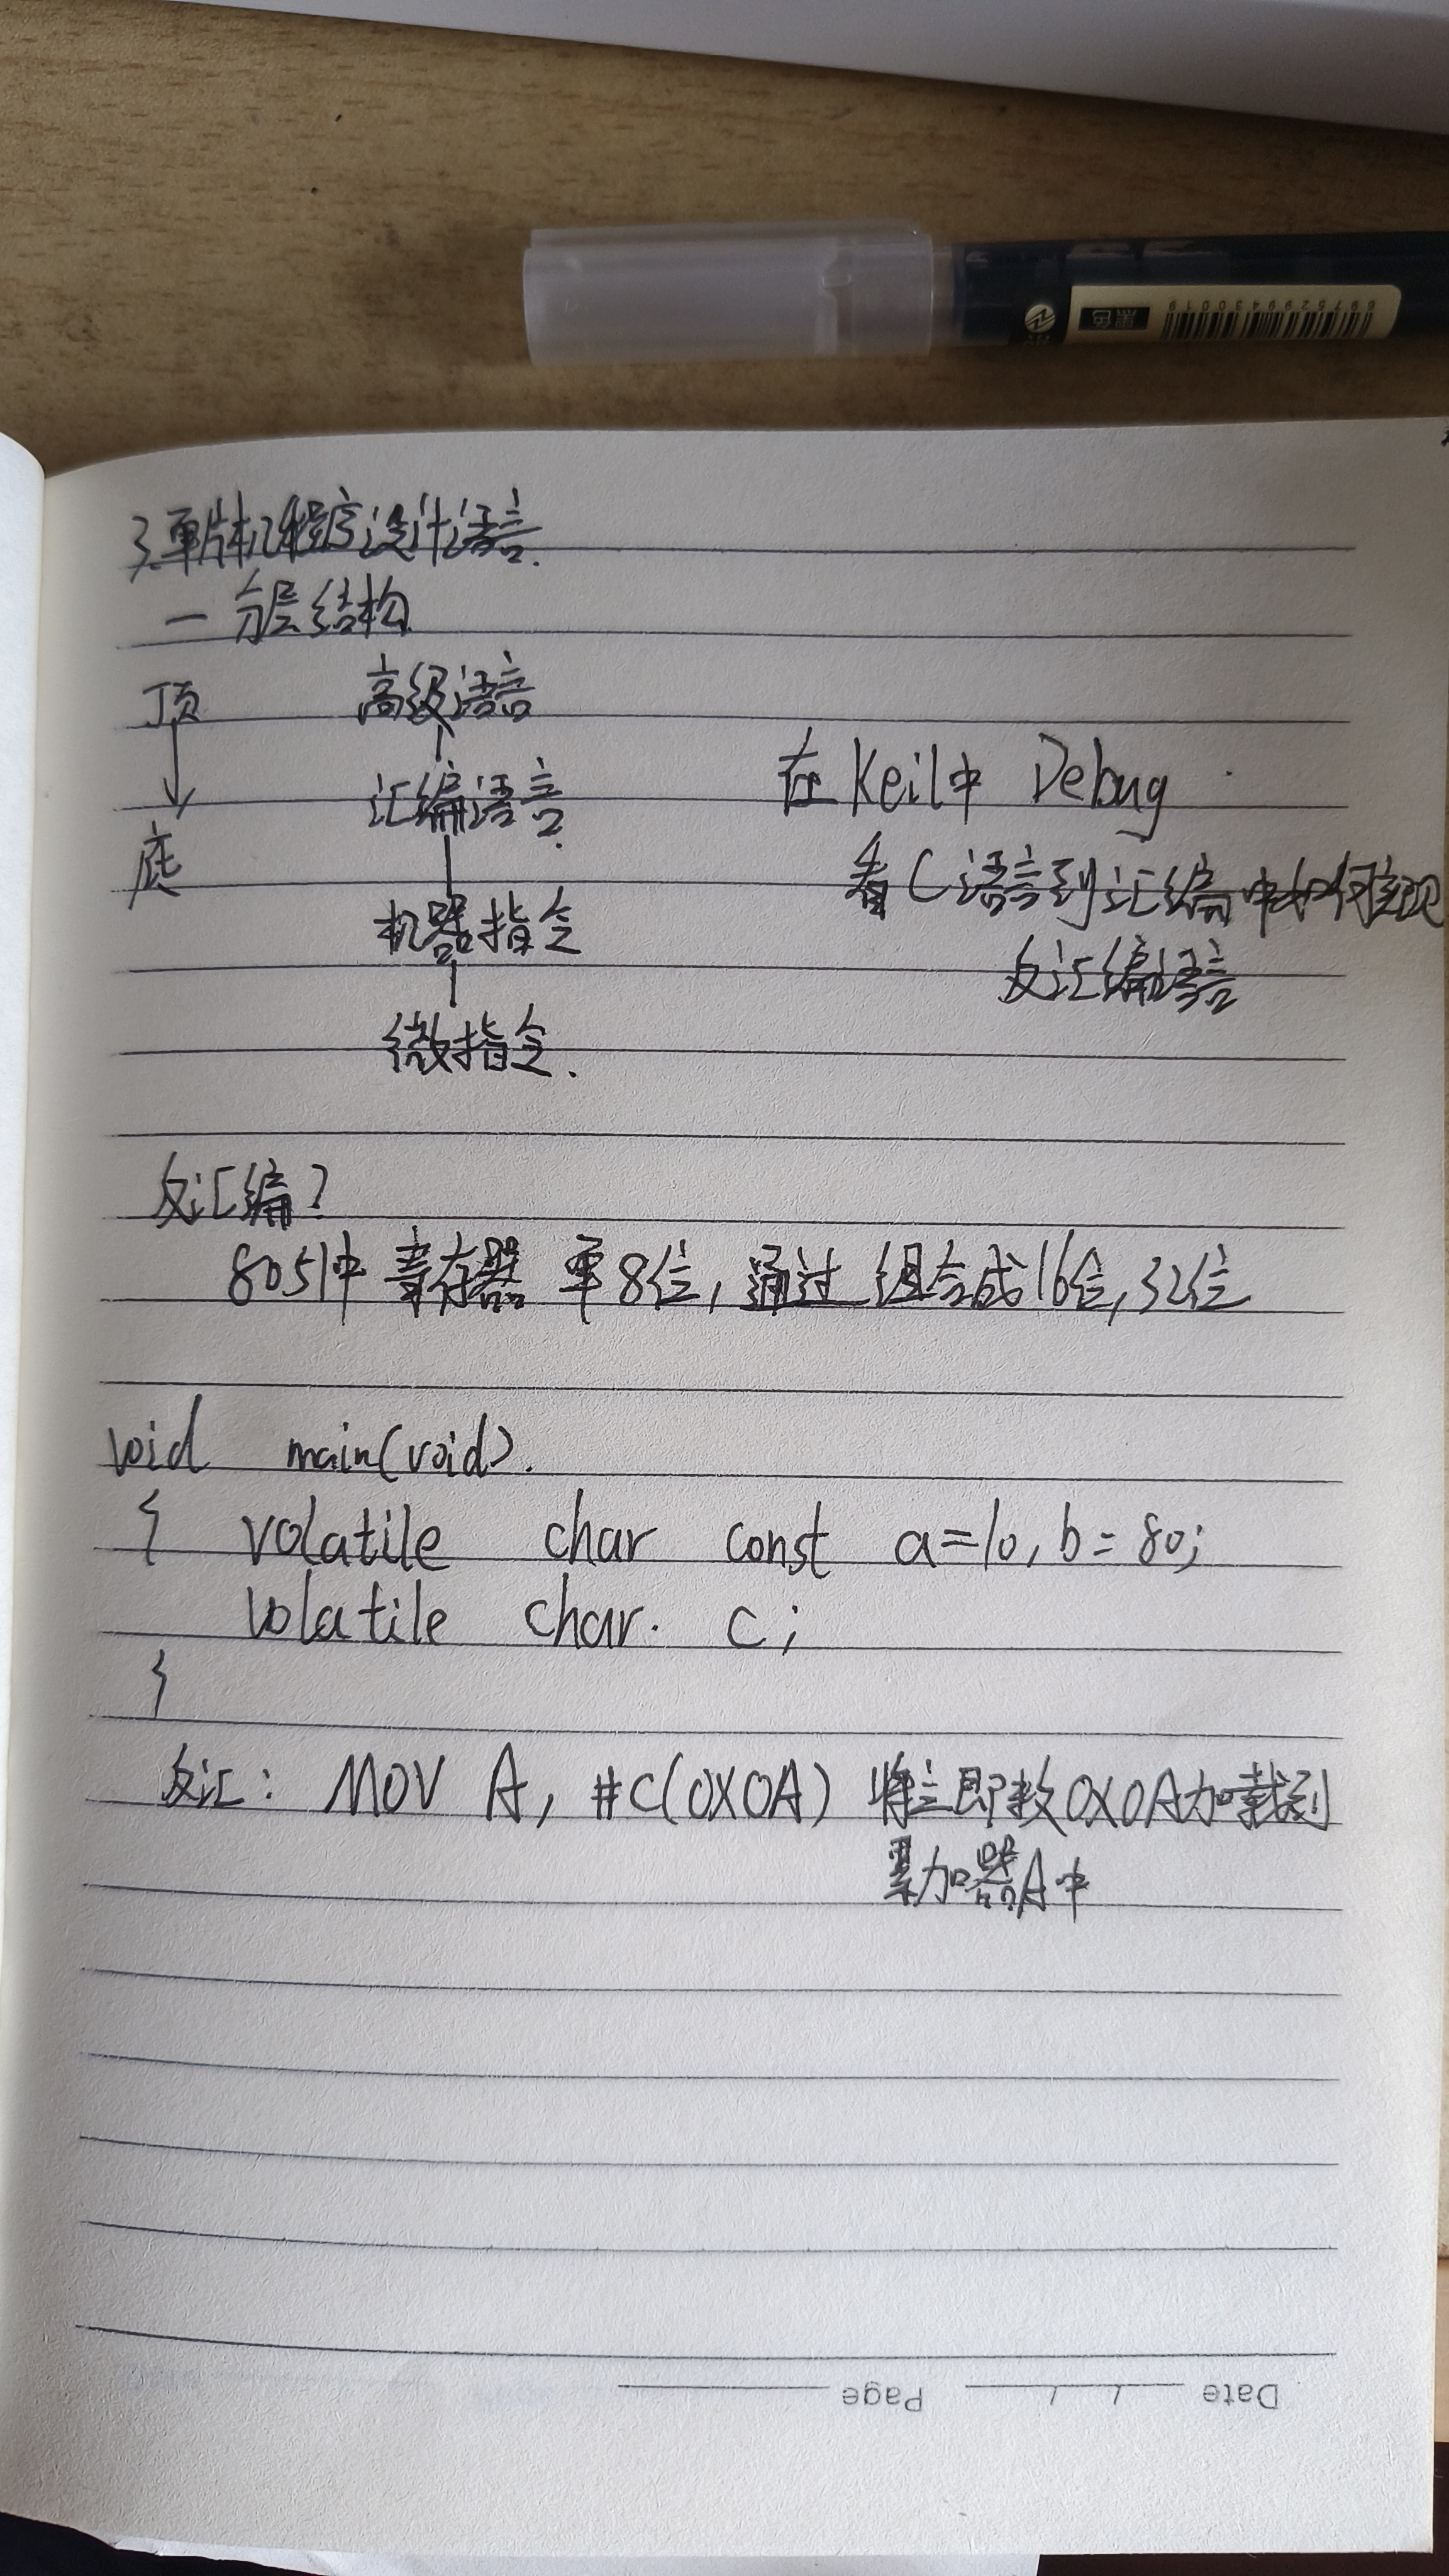 黑色
6975299430019
3.单片机程序设计语言.
一 分层结构
顶 高级语言
汇编语言. 在Keil中 Debug
底 看C语言到汇编中如何实现
机器指令
反汇编语言
微指令.
反汇编?
8051中 寄存器 单8位, 通过 组合成16位, 32位
void main(void).
{ volatile char const a=10, b=80;
volatile char. c;
}
反汇: MOV A, #C(0X0A) 将立即数0X0A加载到
累加器A中
Date / / Page